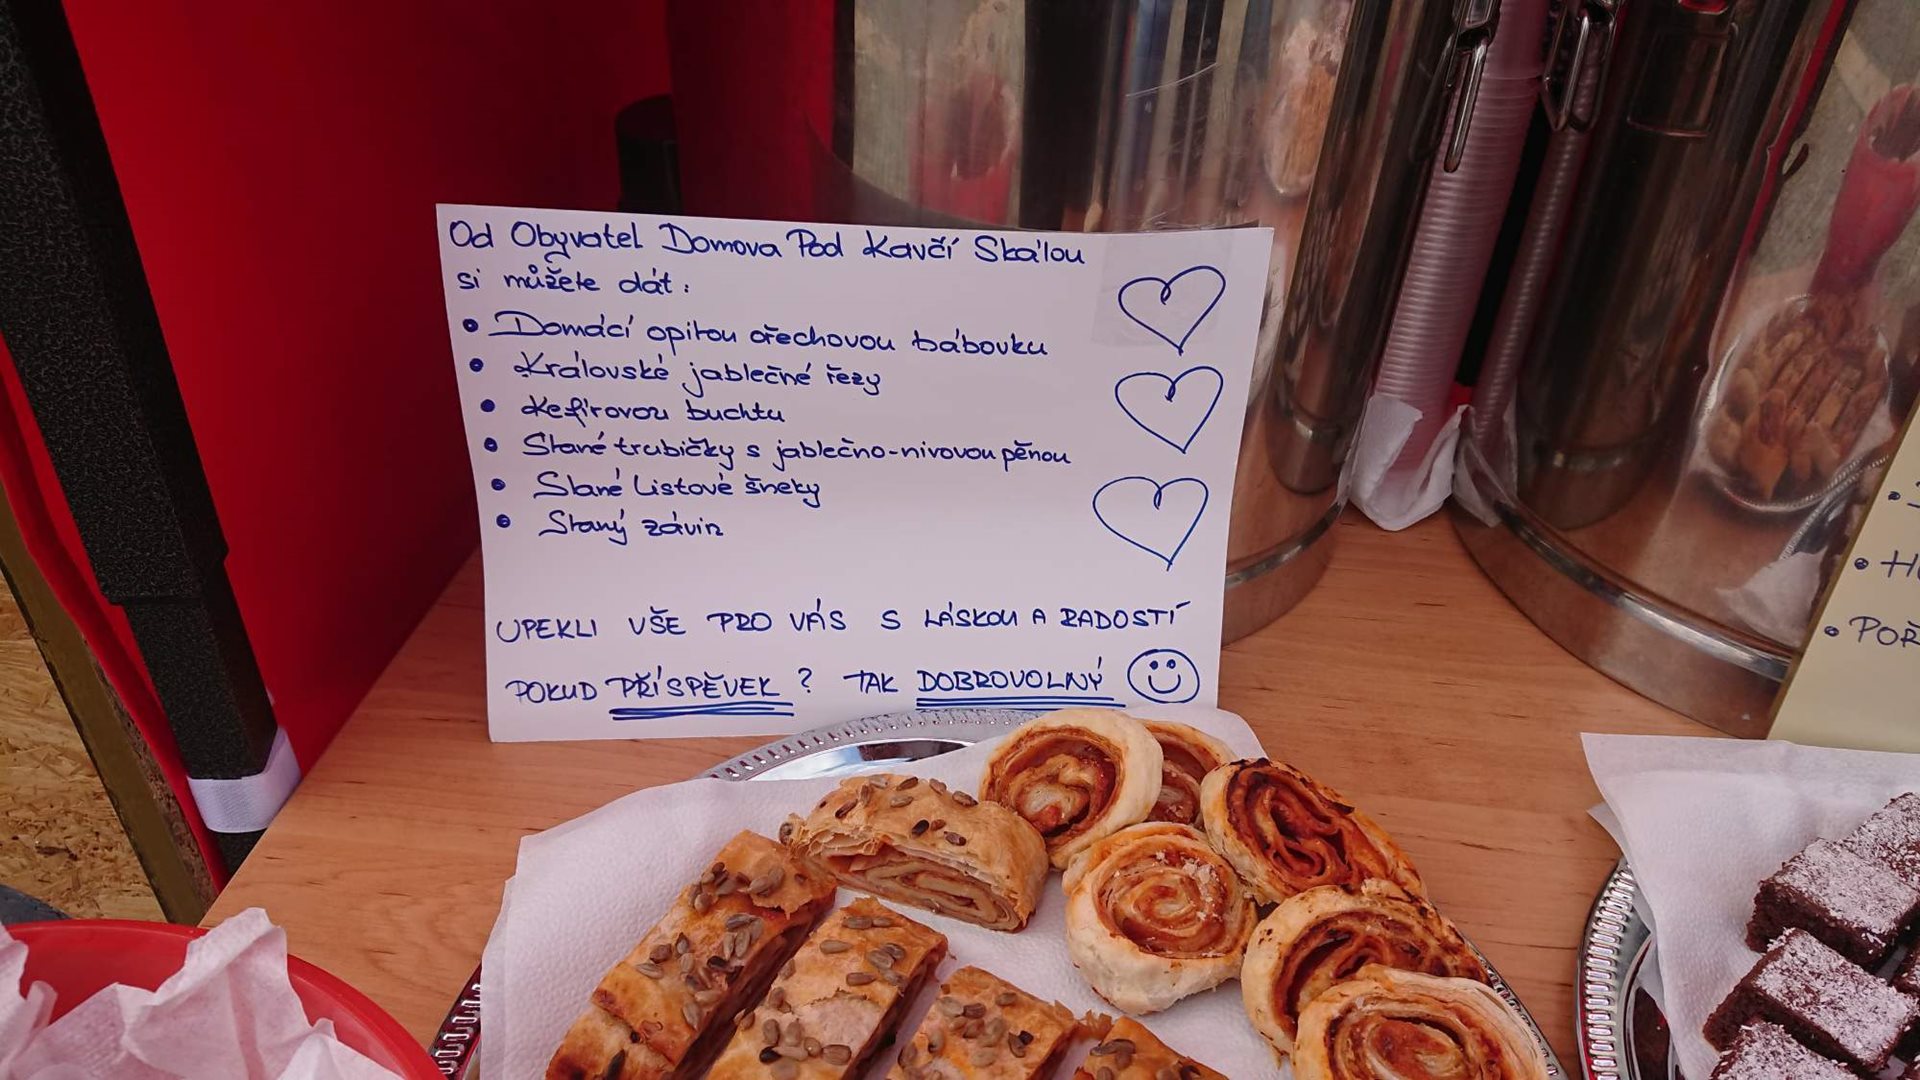 Od Obyvatel Domova Pod Kavčí Skálou
si můžete dát:
• Domácí opitou ořechovou bábovku
• Královské jablečné řezy
• Kefírovou buchtu
• Slané trubičky s jablečno-nivovou pěnou
• Slané listové šneky
• Slaný závin
UPEKLI VŠE PRO VÁS S LÁSKOU A RADOSTÍ
POKUD PŘÍSPĚVEK? TAK DOBROVOLNÝ